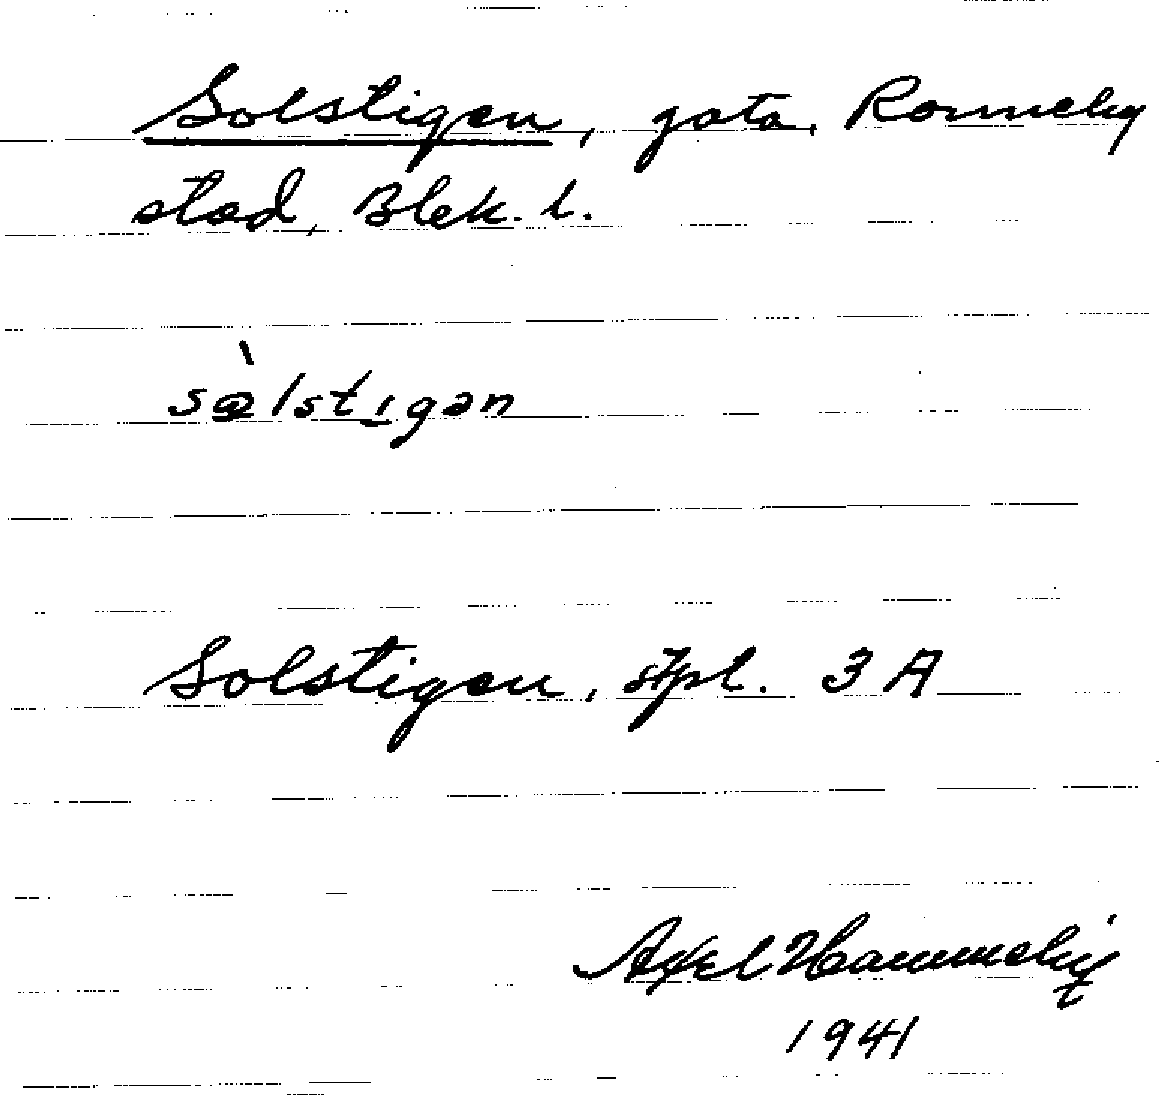 Solstigen, gata, Ronneby
stad, Blek. l.
sòlstigən
Solstigen, stpl. 3 A
Axel
1941